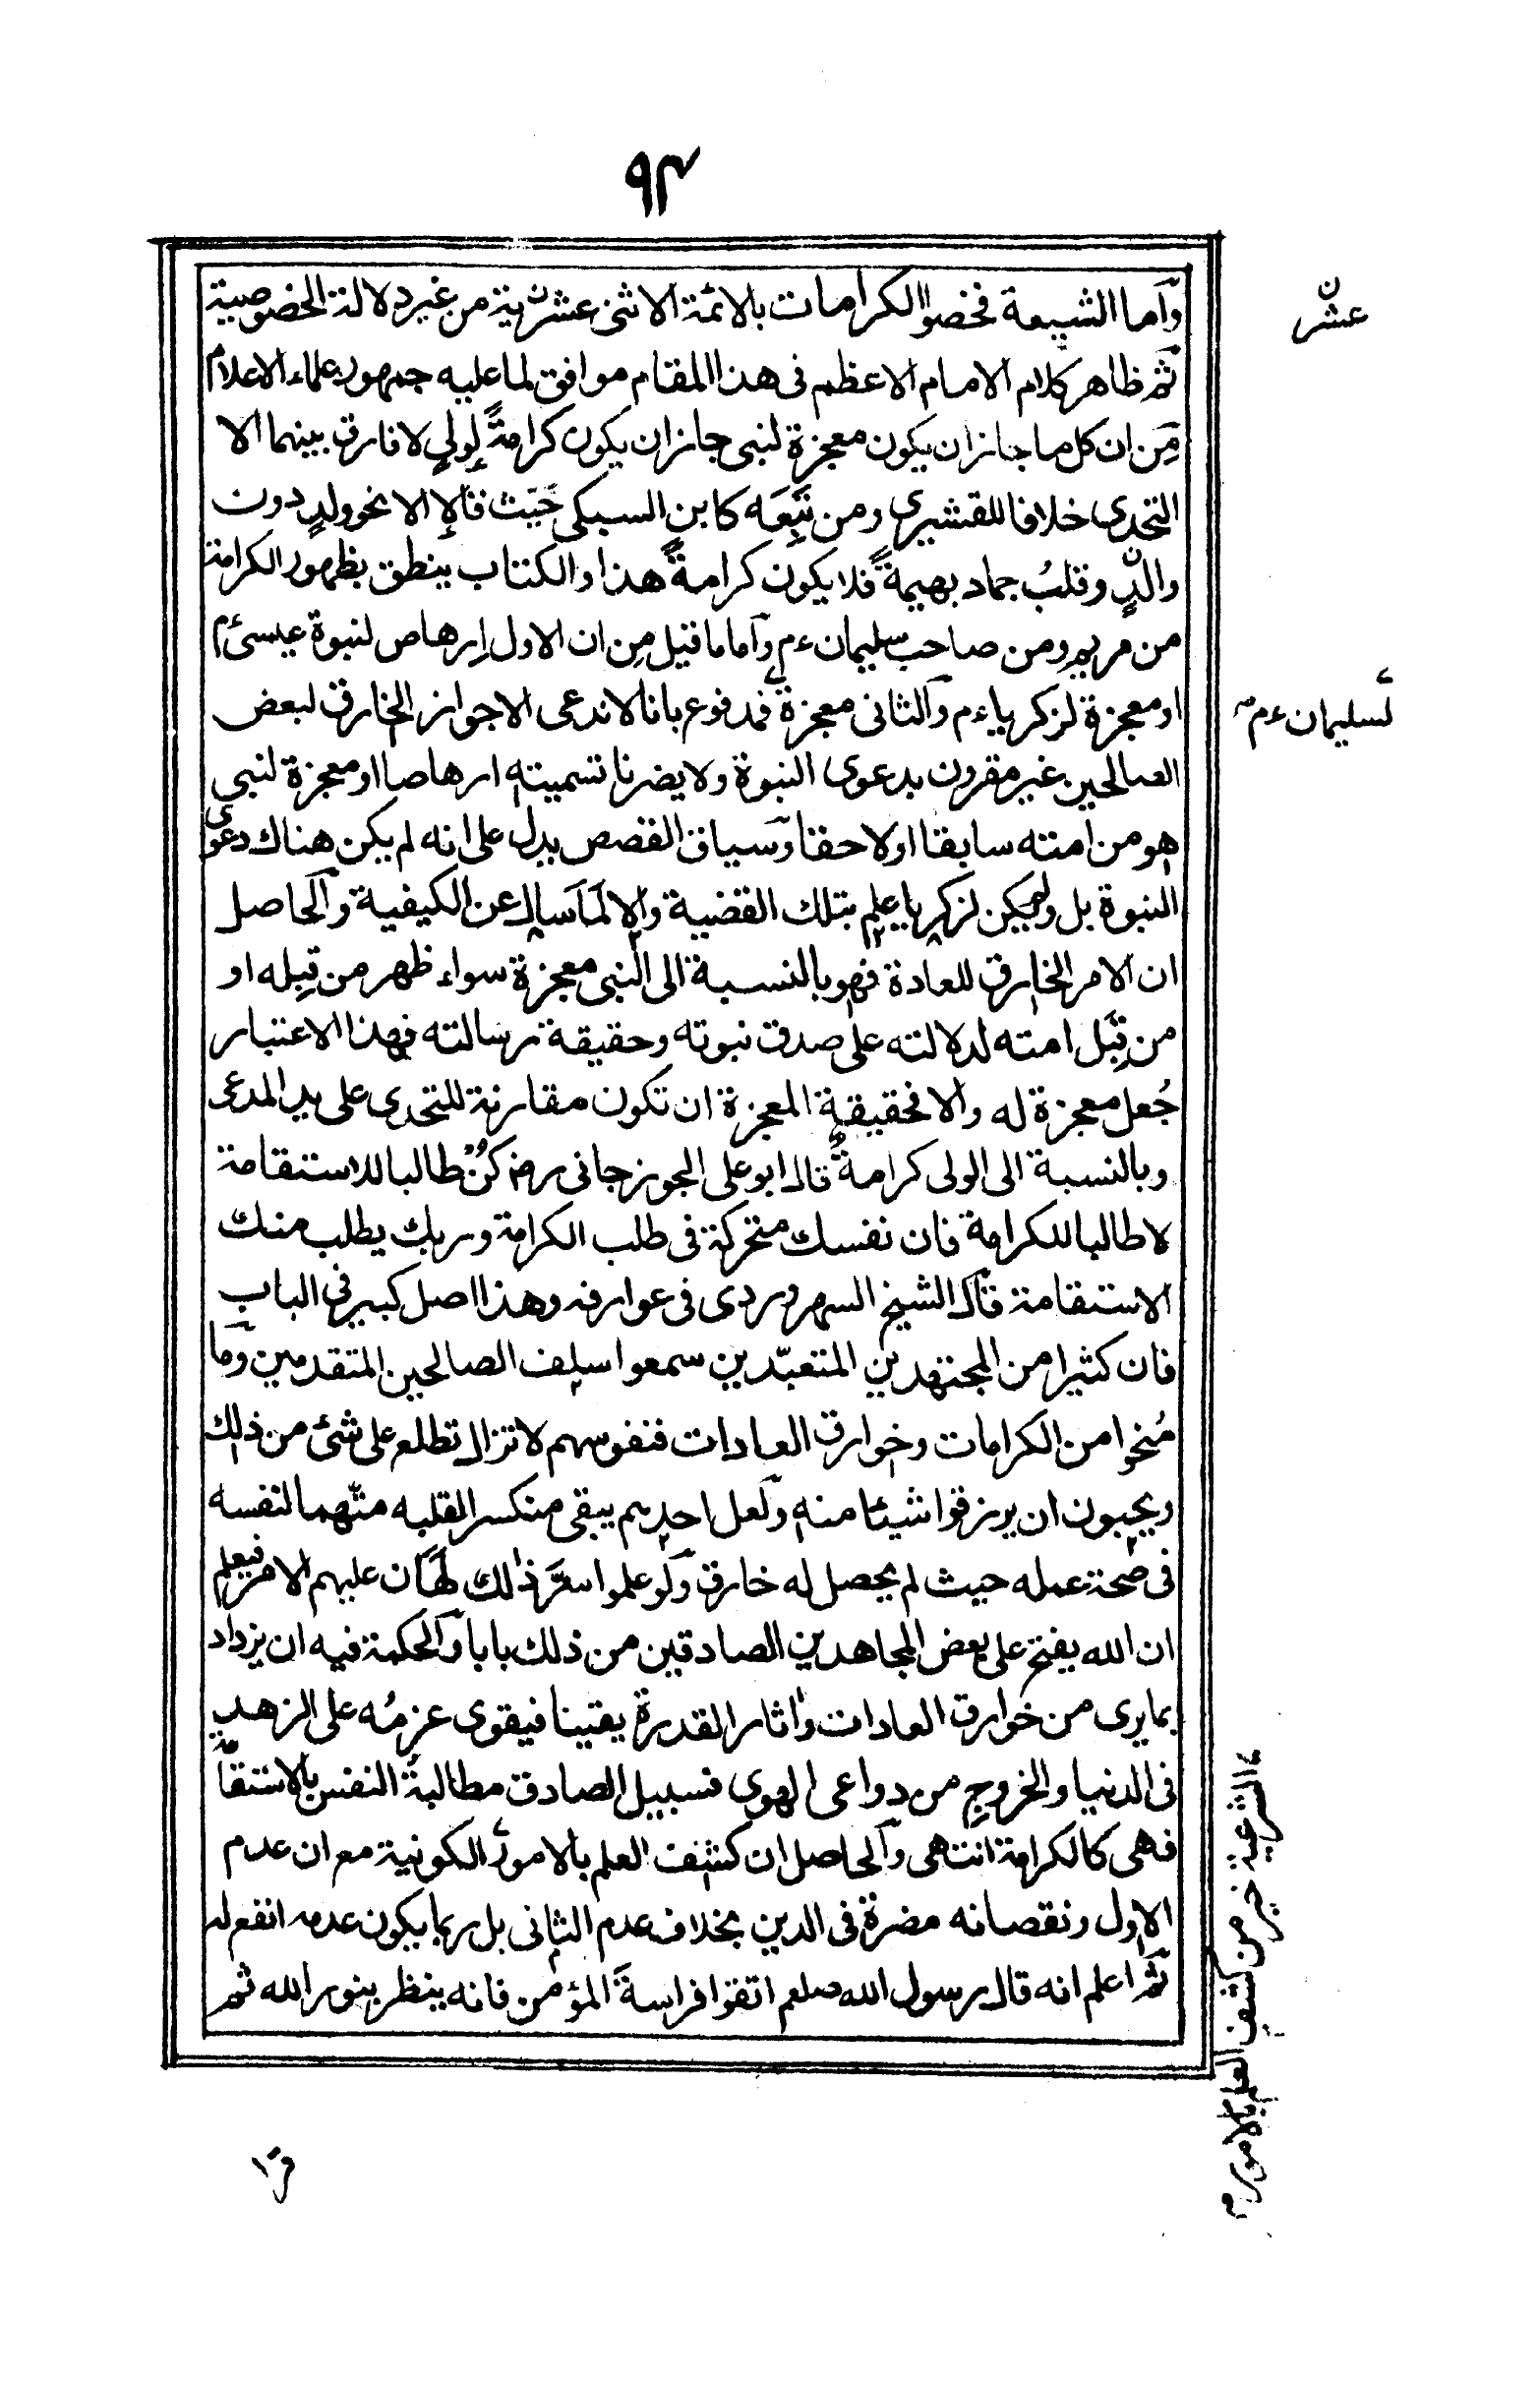 ٩٣
وأما الشيعة فخصوا الكرامات بالائمة الاثنى عشرية من غير دلالة الخصوصية
ثم ظاهر كلام الامام الاعظم فى هذا المقام موافق لما عليه جمهور علماء الاعلام
مِن ان كل ما جاز ان يكون معجزة لنبى جاز ان يكون كرامةً لِولىٍ لا فارق بينهما الا
التحدى خلافا للقشيرى ومن تَبِعَه كابن السبكى حَيث قالا الا نحو ولدٍ دون
والدٍ وقلبُ جماد بهيمةً فلا يكون كرامةً هذا والكتاب ينطق بظهور الكرامة
من مريم ومن صاحب سليمان ءم وأما ما قيل مِن ان الاول اِرهاص لنبوة عيسىٰ م
او معجزة لزكرياءم والثانى معجزة فمدفوع بانا لا ندعى الا جواز الخارق لبعض
الصالحين غير مقرون بدعوى النبوة ولا يضرنا تسميته ارهاصا او معجزة لنبى
هو من امته سابقا او لاحقا وسياق القصص يدل على انه لم يكن هناك دعوى
النبوة بل ولم يكن لزكريا علم بتلك القضية والا لَمَا سال عن الكيفية والحاصل
ان الامر الخارق للعادة فهو بالنسبة الى النبى معجزة سواء ظهر من قِبله او
من قِبَل امته لدلالته على صدق نبوته وحقيقة رسالته فبهذا الاعتبار
جُعل معجزة له والا فحقيقة المعجزة ان تكون مقارنة للتحدى على يد المدعى
وبالنسبة الى الولى كرامةٌ قال ابو على الجوزجانى رض كُنْ طالبا للاستقامة
لا طالبا للكرامة فان نفسك متحركة فى طلب الكرامة وربك يطلب منك
الاستقامة قال الشيخ السهروردى فى عوارفه وهذا اصل كبير فى الباب
فان كثيرا من المجتهدين المتعبّدين سمعوا سلف الصالحين المتقدمين وما
مُنحوا من الكرامات وخوارق العادات فنفوسهم لا تزال تطلع على شئ من ذلك
ويحبون ان يرزقوا شيئا منه ولعل احدهم يبقى منكسر القلبه متّهما لنفسه
فى صحة عمله حيث لم يحصل له خارق ولو علموا سرَّ ذلك لَهَان عليهم الامر فيعلم
ان الله يفتح على بعض المجاهدين الصادقين من ذلك بابا والحكمة فيه ان يزداد
بما يرى من خوارق العادات واثار القدرة يقينا فيقوى عزمُه على الزهد
فى الدنيا والخروجِ من دواعى الهوى فسبيل الصادق مطالبةُ النفس بالاستقامة
فهى كالكرامة انتهى والحاصل ان كشف العلم بالامور الكونية مع ان عدم
الاول ونقصانه مضرة فى الدين بخلاف عدم الثانى بل ربما يكون عدمه انفع له
ثم اعلم انه قال رسول الله صلعم اتقوا فراسةَ المؤمن فانه ينظر بنور الله ثم
عشر
لسليمان ءم
الشرعية خير من كشف العلم بالامور م
قرا